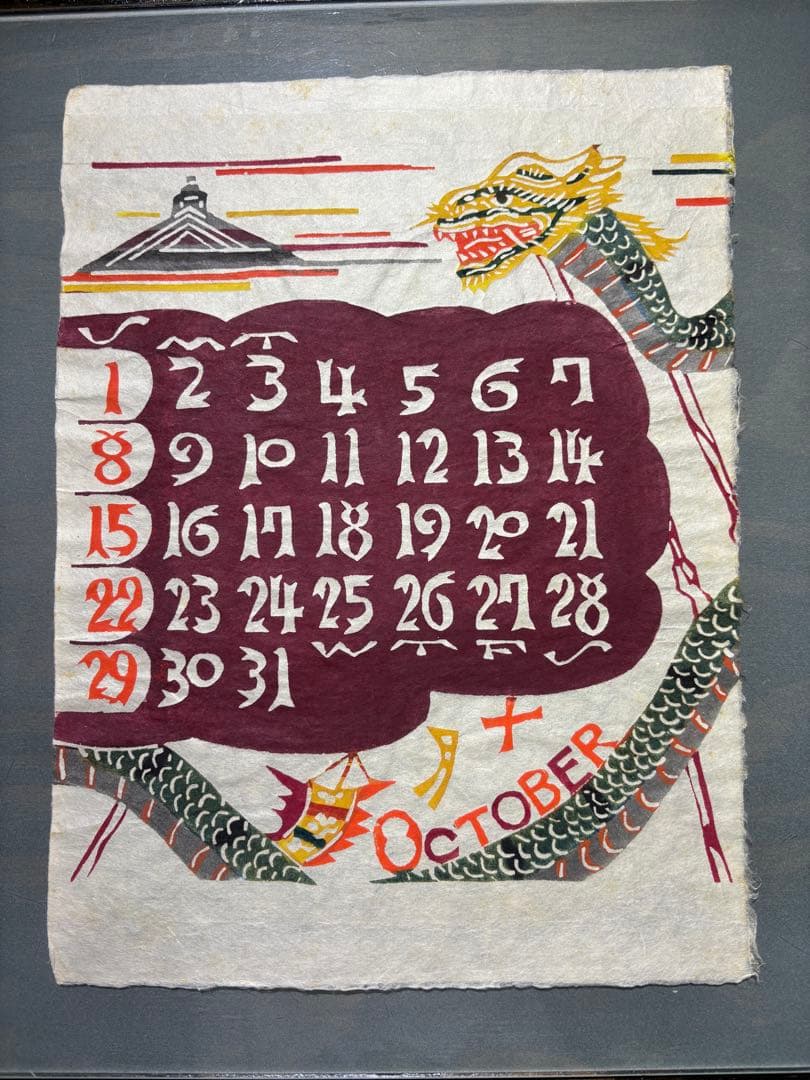 S M T
1 2 3 4 5 6 7
8 9 10 11 12 13 14
15 16 17 18 19 20 21
22 23 24 25 26 27 28
W T F S
29 30 31
十
月
OCTOBER